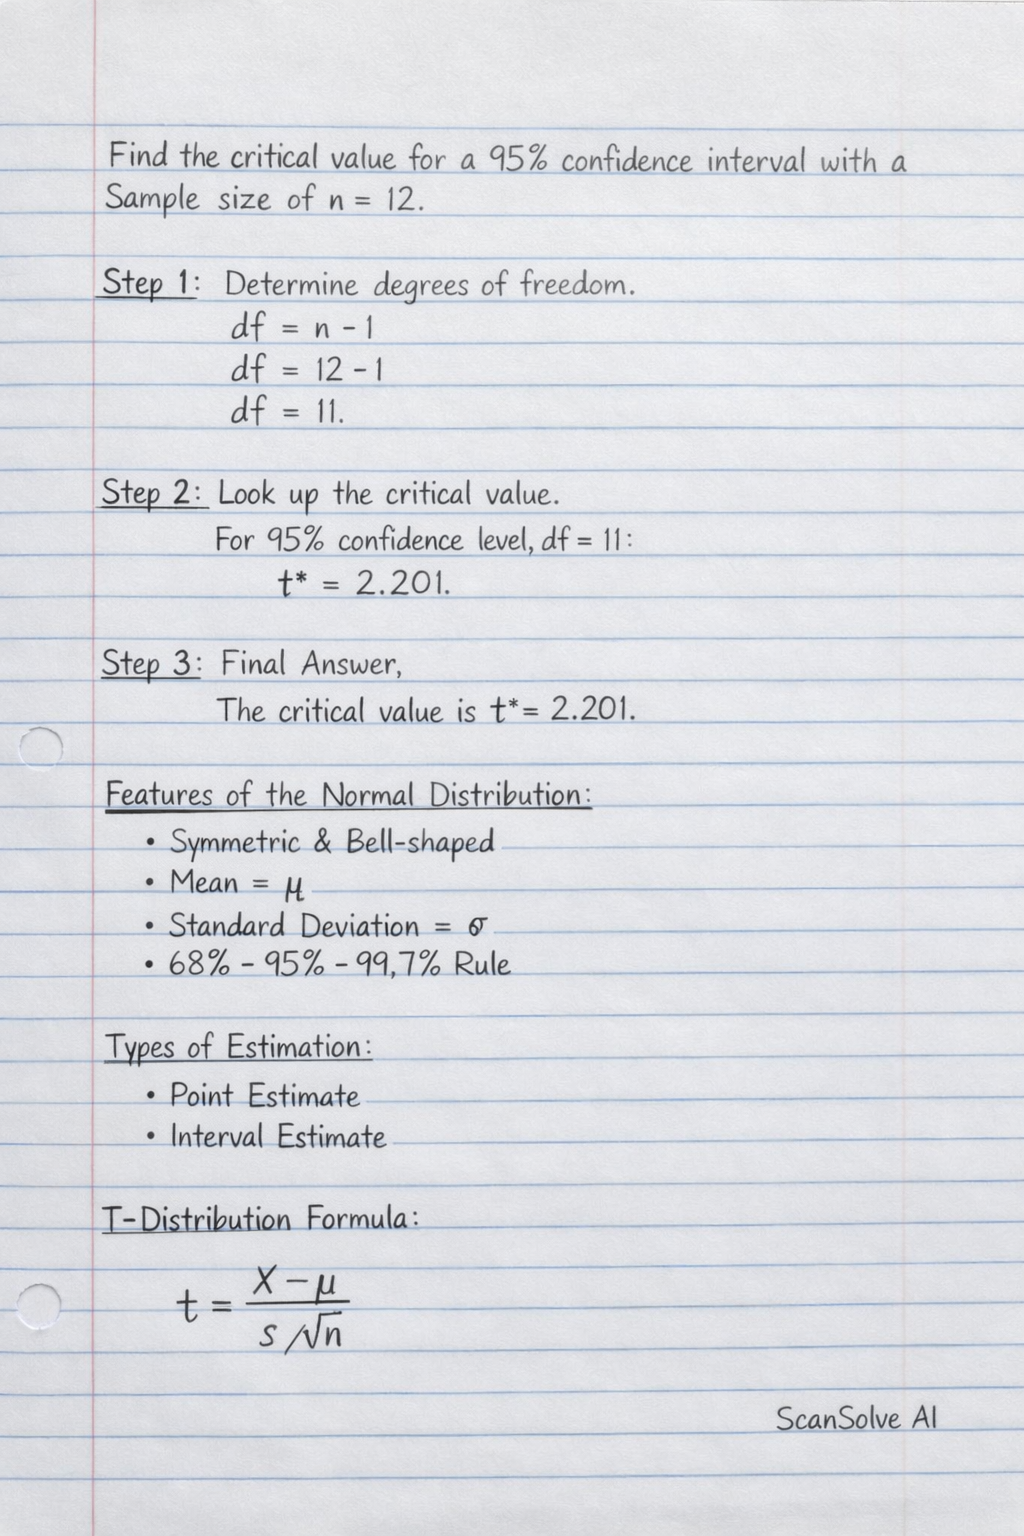 Find the critical value for a 95% confidence interval with a
Sample size of n = 12.
Step 1: Determine degrees of freedom.
df = n - 1
df = 12 - 1
df = 11.
Step 2: Look up the critical value.
For 95% confidence level, df = 11:
t* = 2.201.
Step 3: Final Answer,
The critical value is t* = 2.201.
Features of the Normal Distribution:
• Symmetric & Bell-shaped
• Mean = μ
• Standard Deviation = σ
• 68% - 95% - 99,7% Rule
Types of Estimation:
• Point Estimate
• Interval Estimate
T-Distribution Formula:
t = (X - μ) / (s /√n)
ScanSolve AI